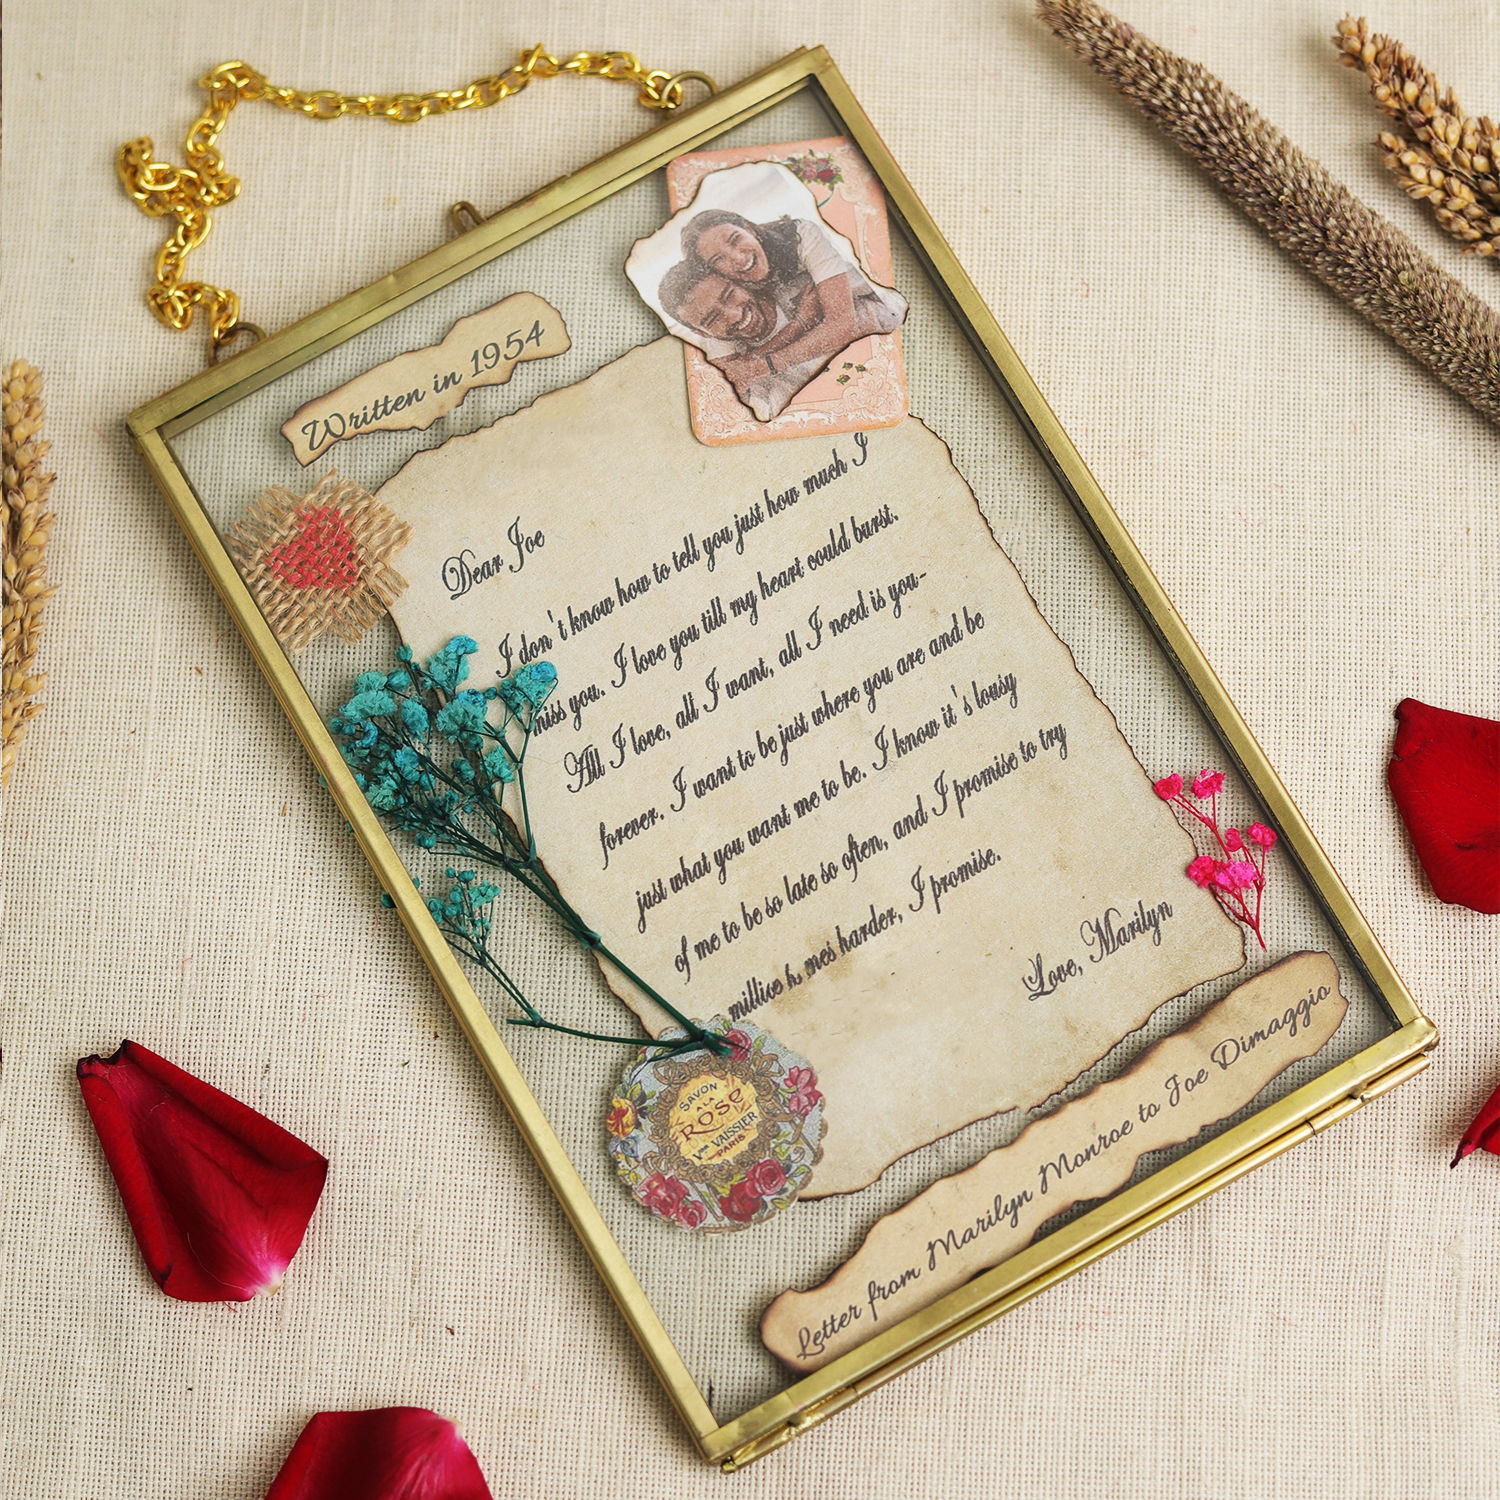 Written in 1954
Dear Joe
I don't know how to tell you just how much I
miss you. I love you till my heart could burst.
All I love, all I want, all I need is you-
forever. I want to be just where you are and be
just what you want me to be. I know it's lousy
of me to be so late so often, and I promise to try
harder, I promise.
Love, Marilyn
SAVON
A LA
ROSE
Vve VAISSIER
PARIS
Letter from Marilyn Monroe to Joe Dimaggio